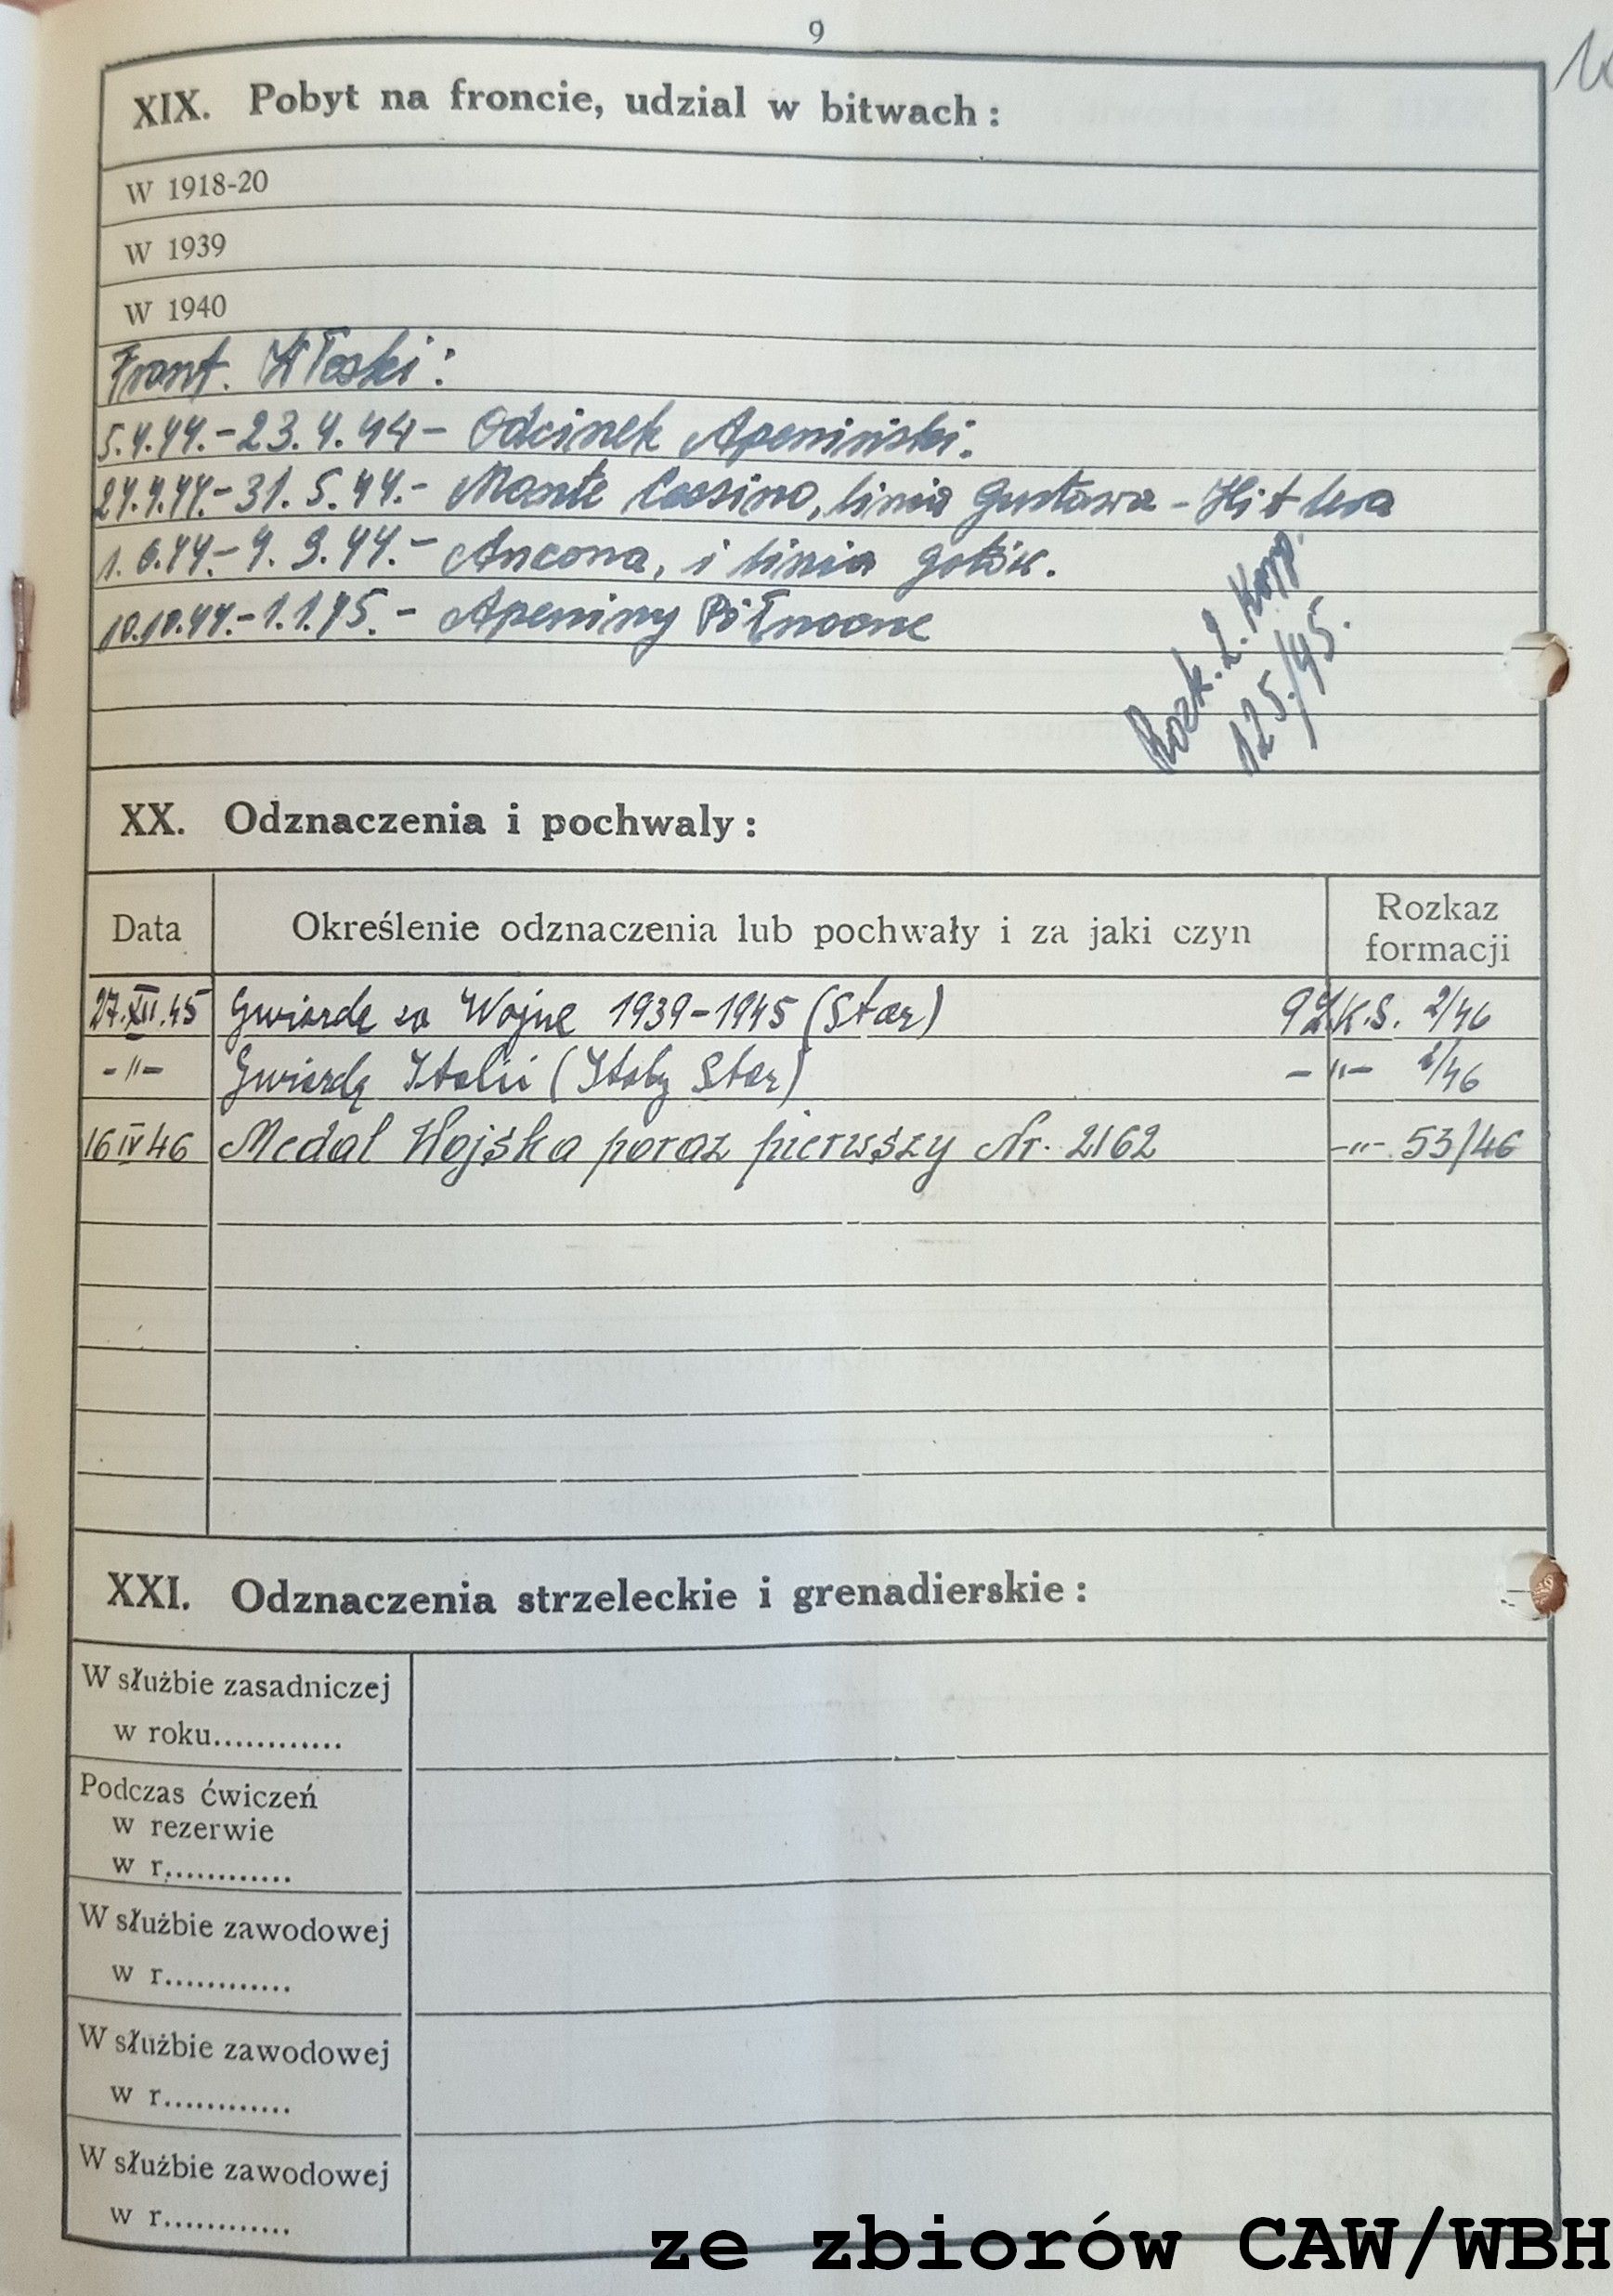 9
XIX. Pobyt na froncie, udzial w bitwach:
W 1918-20
W 1939
W 1940
Front. Włoski:
5.4.44.-23.4.44- Odcinek Apeniński.
24.4.44.-31.5.44.- Monte Cassino, linia Gustawa-Hitlera
1.6.44.-4.9.44.- Ancona, i linia gotów.
10.10.44.-1.1.45.- Apeniny Północne
Rozk. 2. Korp.
125/45.
XX. Odznaczenia i pochwaly:
Data Określenie odznaczenia lub pochwały i za jaki czyn Rozkaz formacji
27.XII.45 Gwiazdę za Wojnę 1939-1945 (Star) K.S. 2/46
-"- Gwiazdę Italii (Italy Star) -"- 2/46
16 IV 46 Medal Wojska poraz pierwszy Nr. 2162 -"- 53/46
XXI. Odznaczenia strzeleckie i grenadierskie:
W służbie zasadniczej
w roku............
Podczas ćwiczeń
w rezerwie
w r............
W służbie zawodowej
w r............
W służbie zawodowej
w r............
W służbie zawodowej
w r............
ze zbiorów CAW/WBH